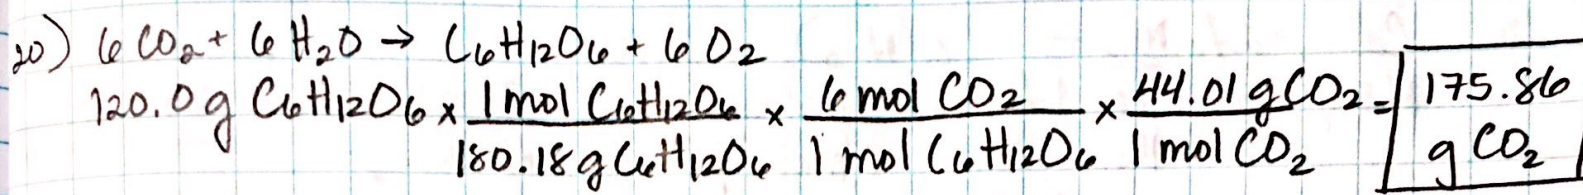 20) 6 CO₂ + 6 H₂O → C₆H₁₂O₆ + 6 O₂
120.0 g C₆H₁₂O₆ × 1 mol C₆H₁₂O₆ / 180.18 g C₆H₁₂O₆ × 6 mol CO₂ / 1 mol C₆H₁₂O₆ × 44.01 g CO₂ / 1 mol CO₂ = 175.86 g CO₂